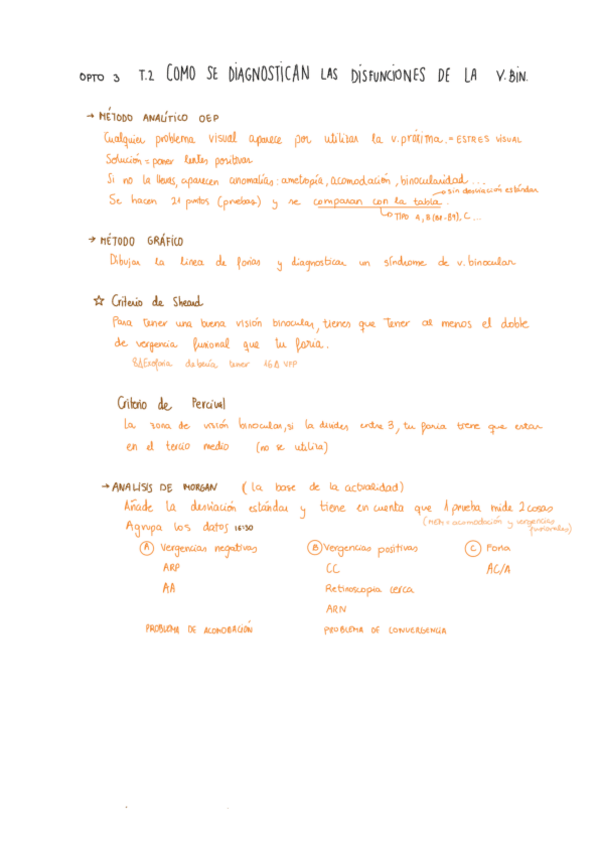 OPTO 3 T.2 COMO SE DIAGNOSTICAN LAS DISFUNCIONES DE LA V. BIN.
→ MÉTODO ANALÍTICO OEP
Cualquier problema visual aparece por utilizar la v. próxima. = ESTRES VISUAL
Solución = poner lentes positivas
Si no la llevas, aparecen anomalías: ametropía, acomodación, binocularidad...
→ sin desviación estándar
Se hacen 21 puntos (pruebas) y se comparan con la tabla.
→ TIPO A, B (B1-B7), C...
→ MÉTODO GRÁFICO
Dibujar la línea de forias y diagnosticar un síndrome de v. binocular
☆ Criterio de Sheard
Para tener una buena visión binocular, tienes que tener al menos el doble
de vergencia fusional que tu foria.
8Δ Exoforia debería tener 16Δ VFP
Criterio de Percival
La zona de visión binocular, si la divides entre 3, tu foria tiene que estar
en el tercio medio (no se utiliza)
→ ANALISIS DE MORGAN (la base de la actualidad)
Añade la desviación estándar y tiene en cuenta que 1 prueba mide 2 cosas
Agrupa los datos 16:30
acomodación y vergencias fusionales)
Ⓐ Vergencias negativas Ⓑ Vergencias positivas Ⓒ Foria
ARP CC AC/A
AA Retinoscopia cerca
ARN
PROBLEMA DE ACOMODACIÓN PROBLEMA DE CONVERGENCIA